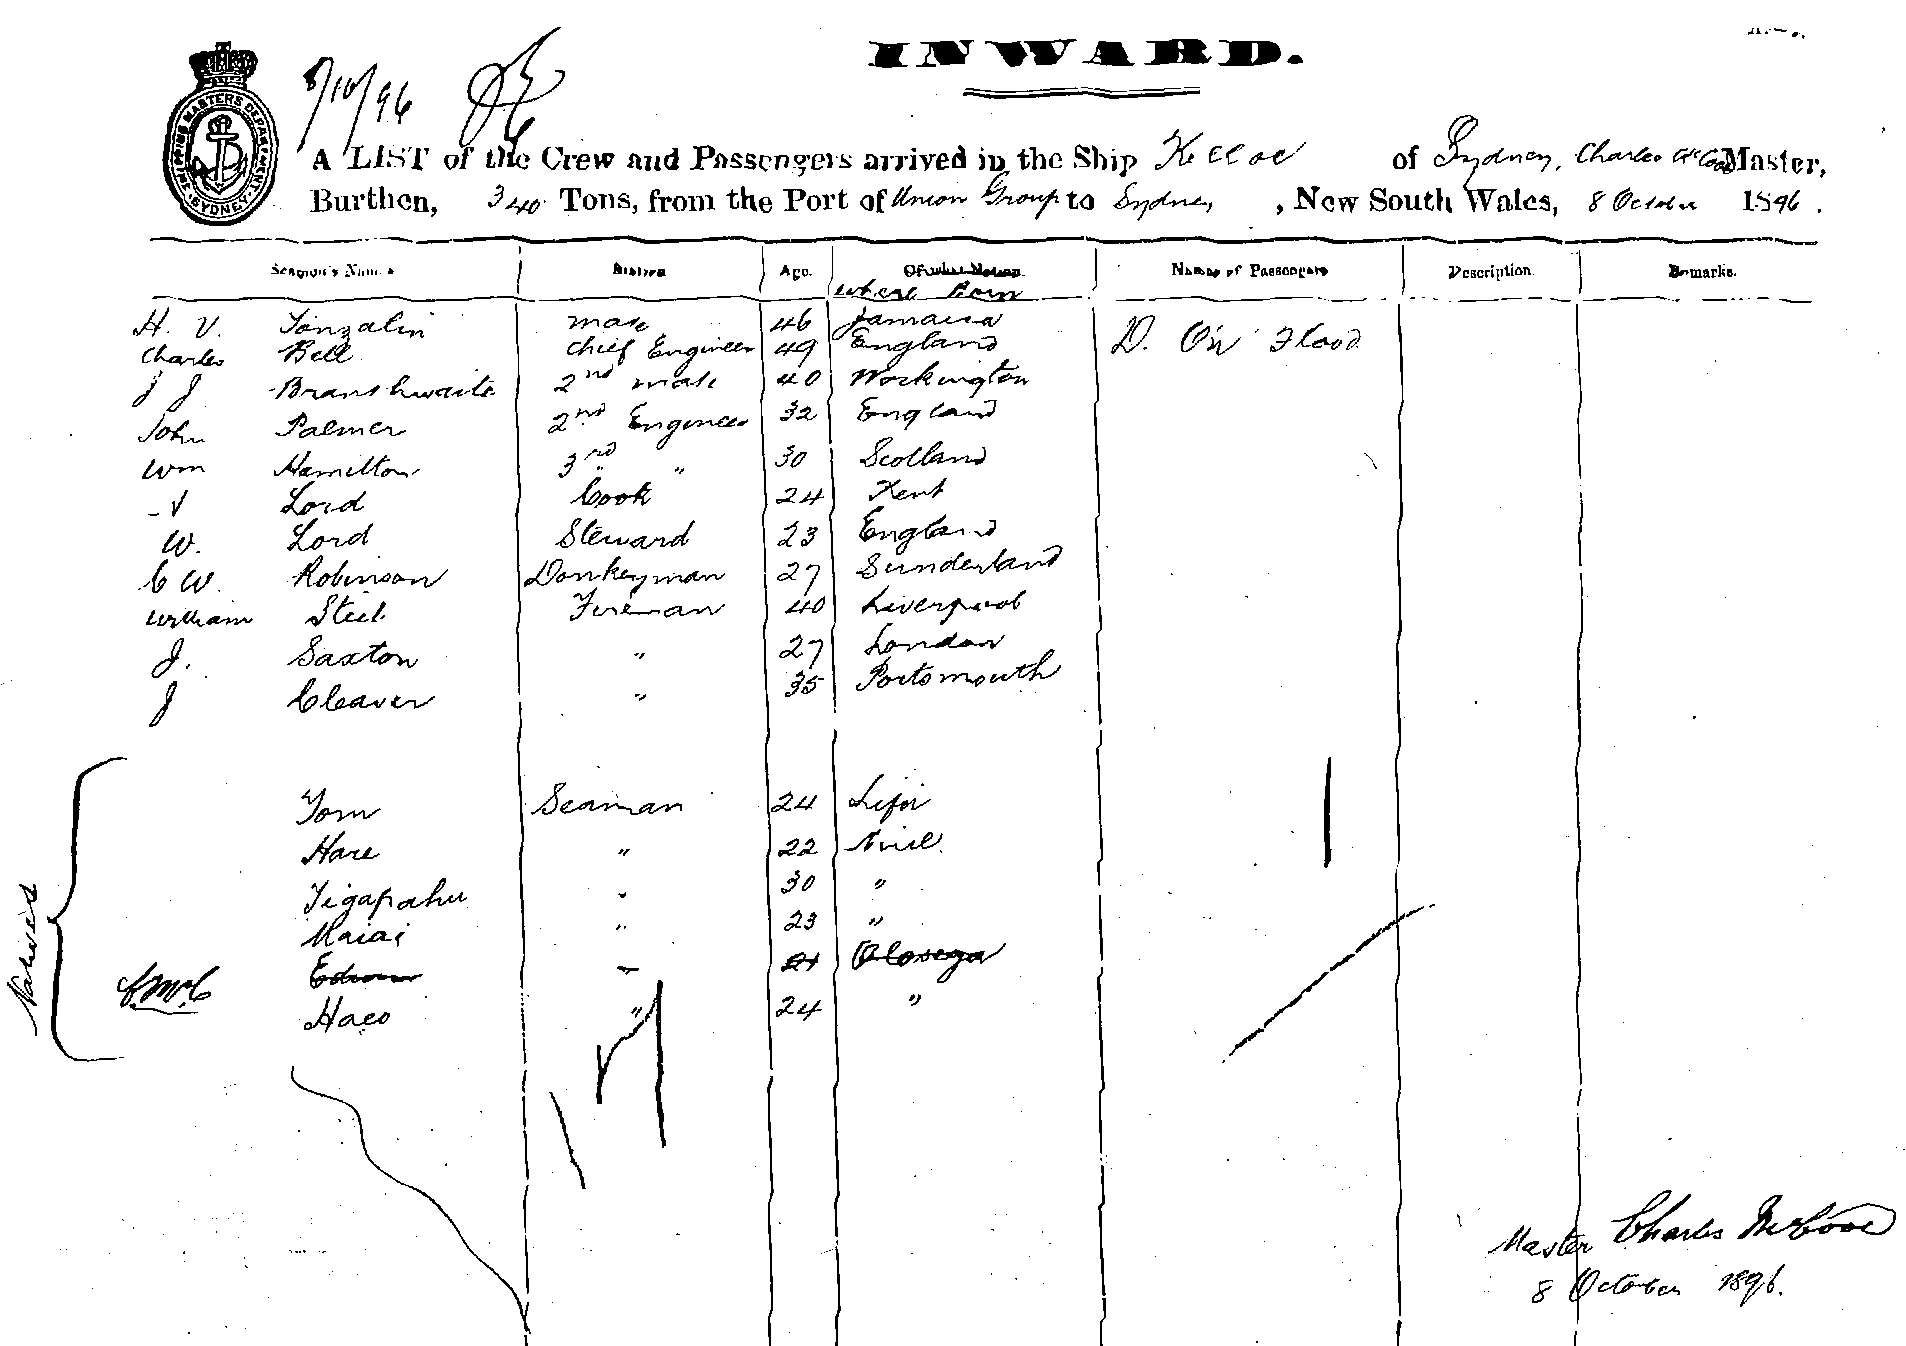 INWARD.
8/10/96
SHIPPING MASTERS DEPARTMENT SYDNEY
A LIST of the Crew and Passengers arrived in the Ship Kelloe of Sydney, Charles McCooe Master,
Burthen, 340 Tons, from the Port of Union Group to Sydney, New South Wales, 8 October 1896.
Seamen's Names Station Age. Of what Nation. Names of Passengers Description. Remarks.
where Born
H. V. Tonzalin mate 46 Jamaica
Charles Bell chief Engineer 49 England D. O'n Flood
J J Branthwaite 2nd mate 40 Workington
John Palmer 2nd Engineer 32 England
Wm Hamilton 3rd " " 30 Scotland
Lord Cook 24 Kent
W. Lord Steward 23 England
C W. Robinson Donkeyman 27 Sunderland
William Steel Fireman 40 Liverpool
J. Saxton " 27 London
J Cleaver " 35 Portsmouth
Natives
Tom Seaman 24 Lifu
Hare " 22 Niue
Tigapahu " 30 "
Maiai " 23 "
C.McC Edwin " 21 Olosega
Haeo " 24 "
17
Master Charles McCooe
8 October 1896.